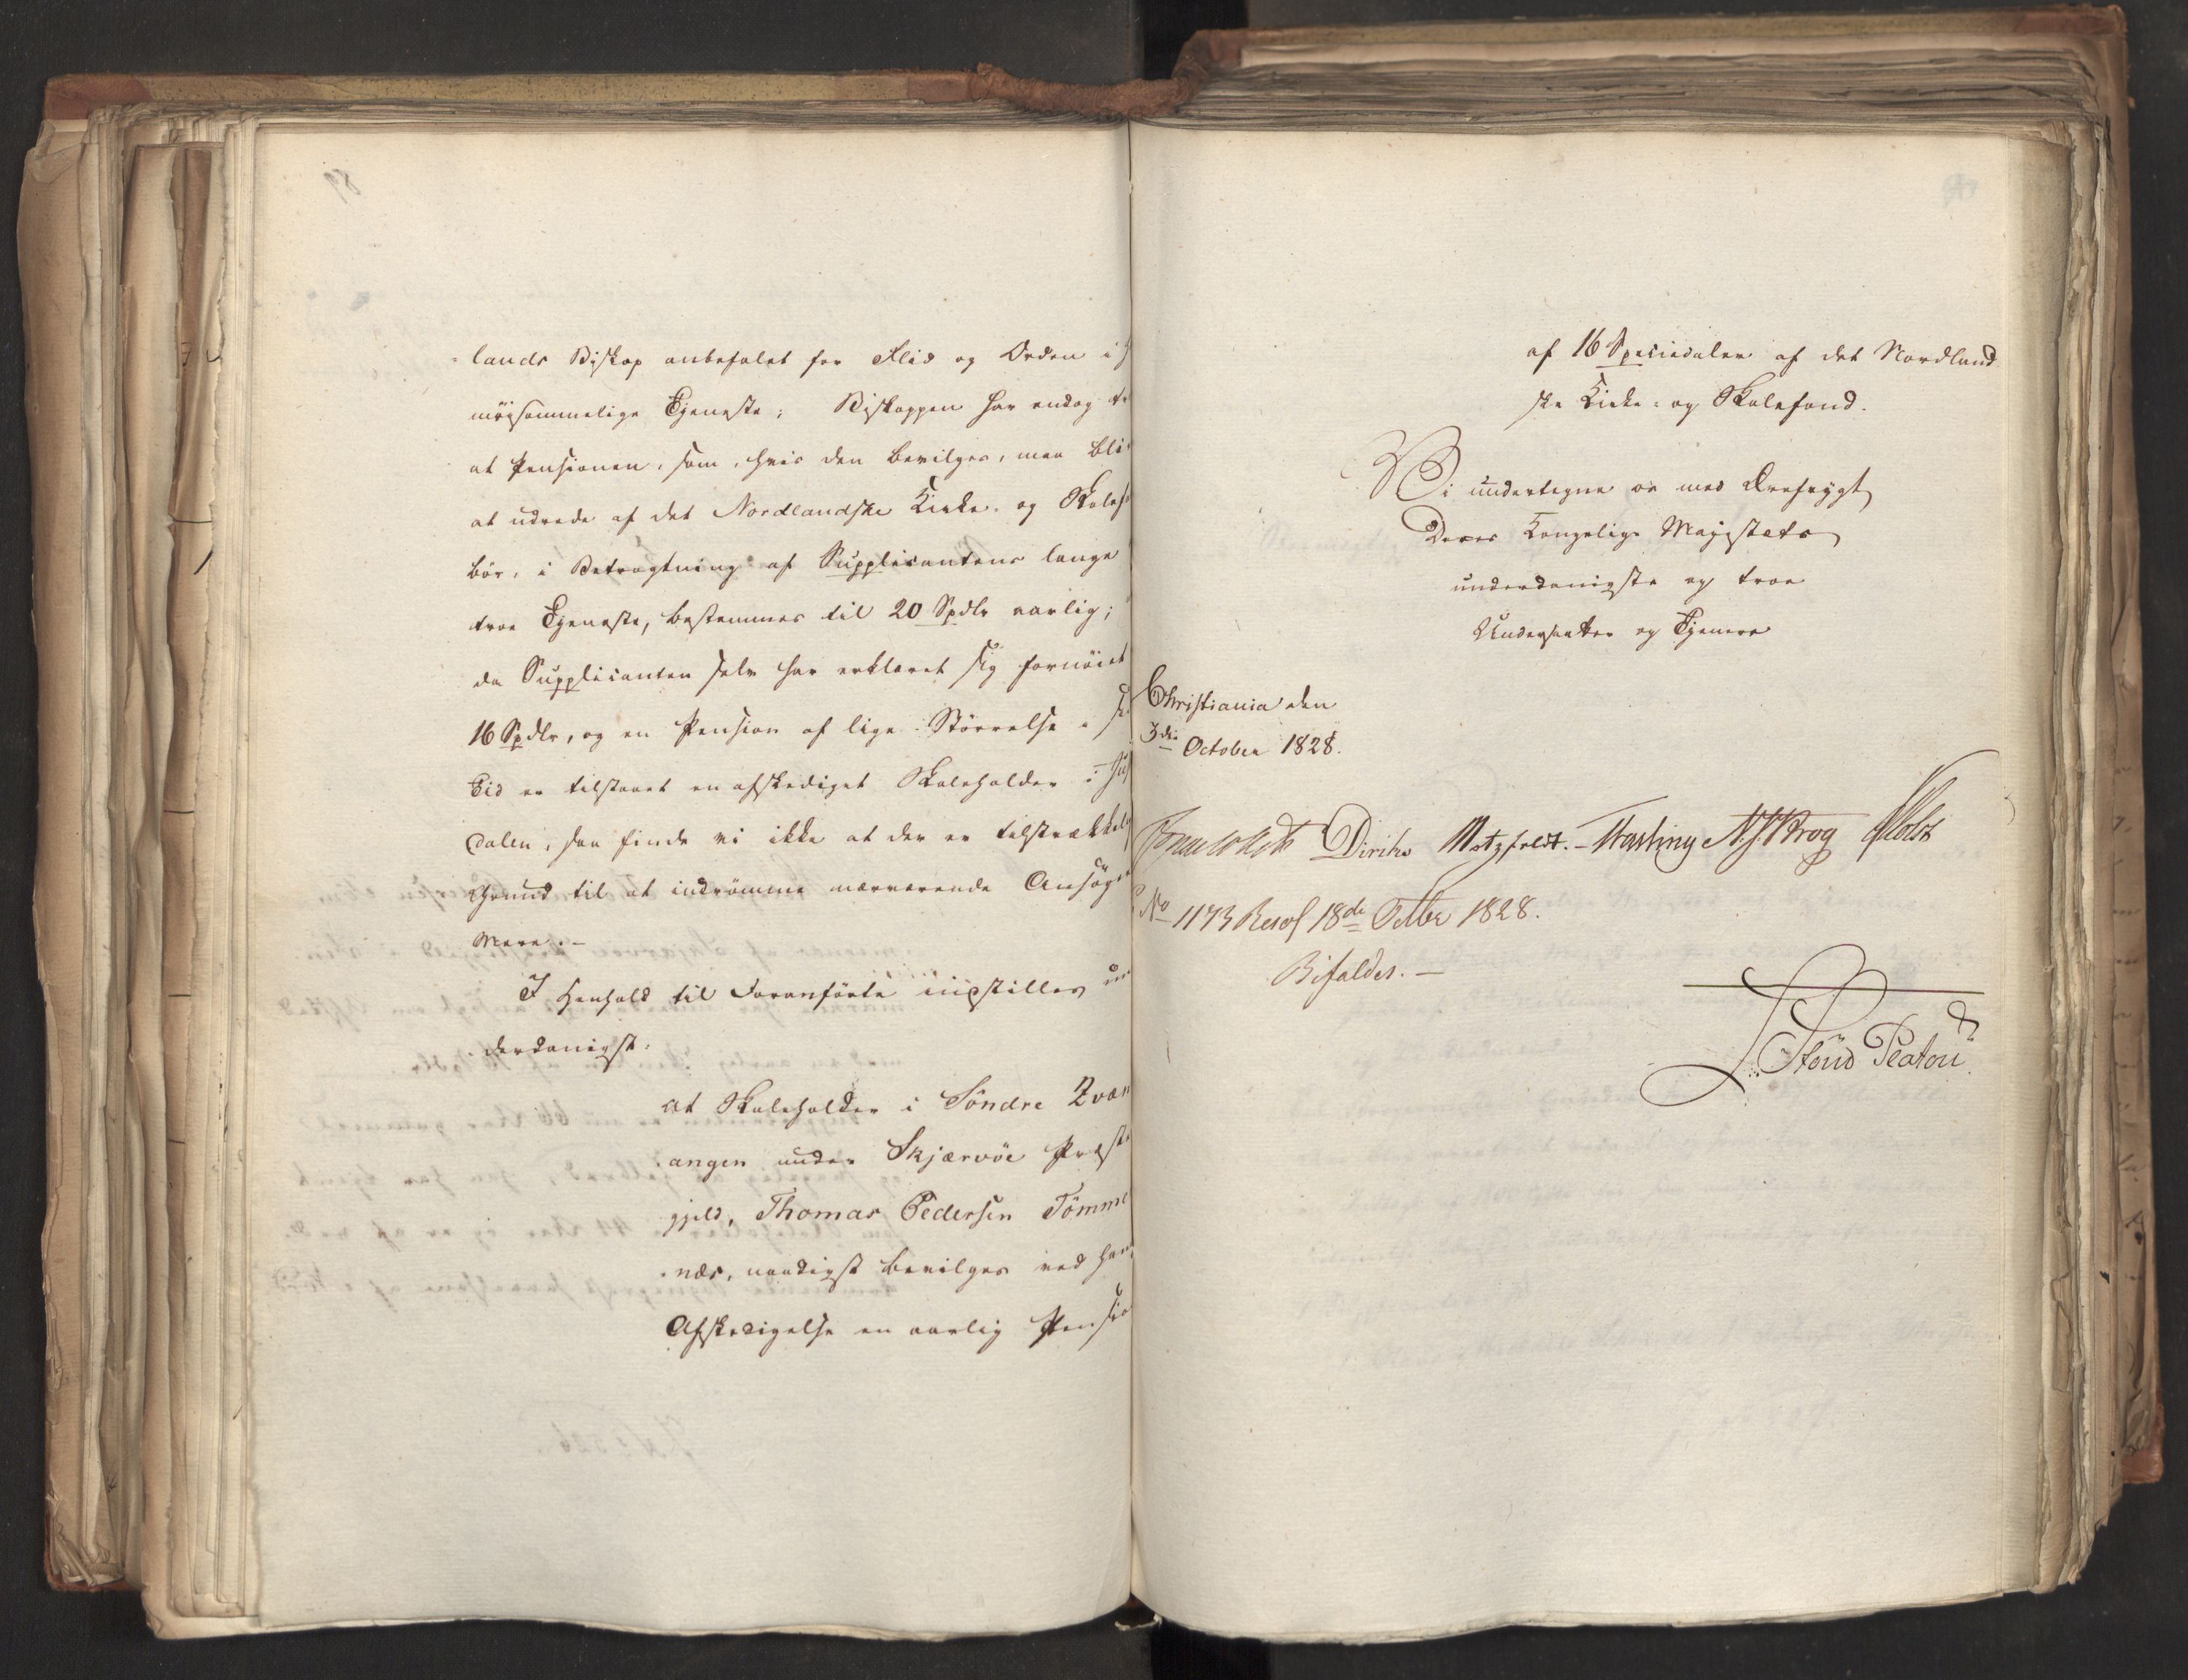 lands Biskop anbefalet for Flid og Orden i
möisommelige Tjeneste; Biskoppen har endog
at Pensionen, som, hvis den bevilges, maa bli
at udrede af det Nordlandske Kirke- og Skolef
bör, i Betragtning af Supplicantens lange
troe Tjeneste, bestemmes til 20 Spdlr aarlig;
da Supplicanten selv har erklæret sig fornöiet
16 Spdlr, og en Pension af lige Störrelse i
Tid er tilstaaet en afskediget Skoleholder i
dalen, saa finde vi ikke at der er tilstrækkelig
Grund til at indrömme nærværende Ansöger
Mere.-
I Henhold til Foranförte indstilles un
derdanigst:
at Skoleholder i Söndre Qvæn
angen under Skjærvöe Præste
gjeld, Thomas Pedersen Tömme
næs, naadigst bevilges ved hans
Afskedigelse en aarlig Pensio
af 16 Speciedaler af det Nordland
ske Kirke- og Skolefond.
Vi undertegne os med Ærefrygt
Deres Kongelige Majestæts
underdanigste og troe
Undersaatter og Tjenere
Christiania den
3die October 1828.
Diriks Motzfeldt. Fasting N. J. Krog Holst
No 1173 Resol 18de Octbr 1828.
Bifaldes.-
Stoud Platou